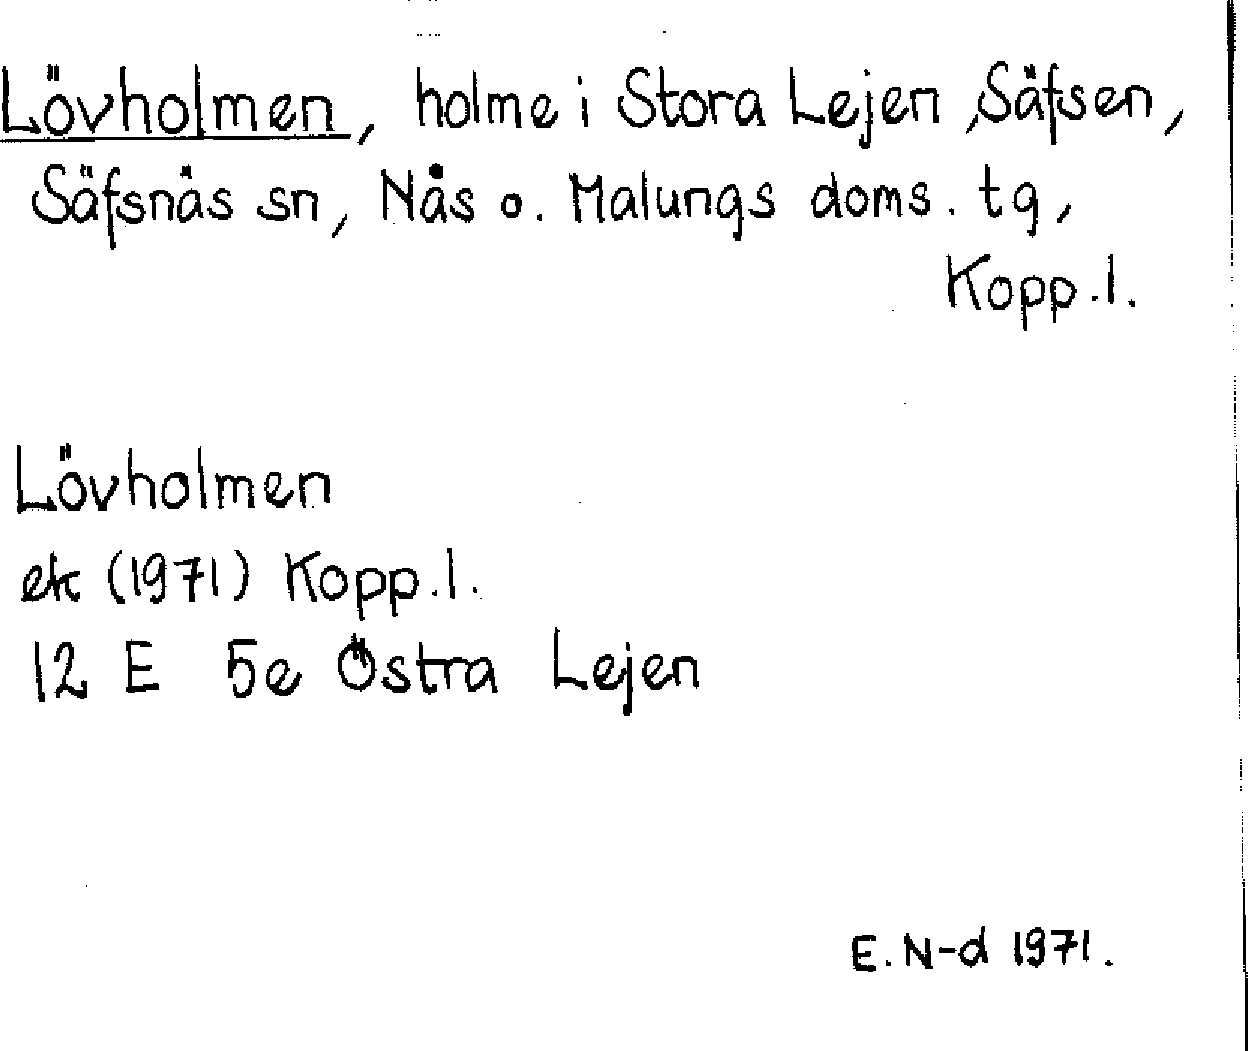 Lövholmen, holme i Stora Lejen, Säfsen,
Säfsnäs sn, Nås o. Malungs doms. tg,
Kopp.l.
Lövholmen
ek (1971) Kopp.l.
12 E 5e Östra Lejen
E. N-d 1971.